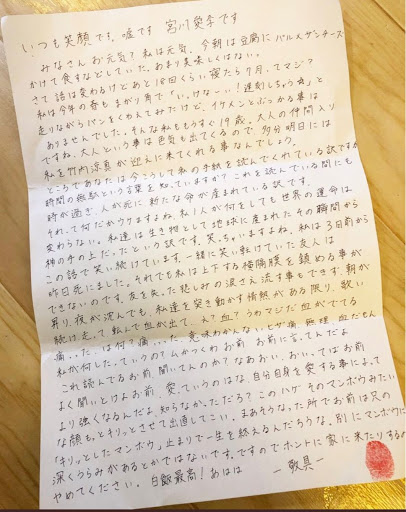 いつも笑顔です。嘘です 宮川愛李です
みなさんお元気？私は元気。今朝は豆腐にパルメザンチーズ
かけて食すなどしていた。あまり美味しくはない。
さて話は変わるけどあと10回くらい寝たら7月。てマジ？
私は今年の春もまがり角で「い、けなーい！遅刻しちゃう☆」と
走りながらパンをくわえてみたけど、イケメンとぶつかる事は
ありませんでした。そんな私ももうすぐ19歳。大人の仲間入り
ですね。大人という事は色気も出てくるので、多分明日には
私を竹内涼真が迎えに来てくれる事なんでしょう。
ところであなたは今こうして私の手紙を読んでくれている訳ですが
時間の無駄という言葉を知っていますか？これを読んでいる間にも
時が過ぎ、人が死に新たな命が産まれている訳です。
それって何だかウケますよね。私1人が何をしても世界の運命は
変わらない。私達は生き物として地球に産まれたその瞬間から
神の手の上だったという訳です。笑っちゃいますよね。私は3日前から
この話で笑い続けています。一緒に笑い転げていた友人は
昨日死にました。それでも私は上下する横隔膜を鎮める事が
できないのです。友を失った悲しみの涙さえ流す事もできず、朝が
昇り、夜が沈んでも、私達を突き動かす情熱がある限り、歌い
続け走って転んで血が出て、え？血？うわマジだ血がでてる
痛..た..は何？痛...た 意味わかんない ヒザ痛 無理 血だもん
私が何した、ていうの？ムカつくわお前 お前に言ってんだよ
これ読んでるお前 聞いてんのか？なあおい、おい、ってばお前
よく聞いとけよお前 愛、ていうのはな、自分自身を愛する事によって
より強くなるんだよ。知らなかっただろ？このハゲ そのマンボウみたい
な顔も、とキリっとさせて出直してこい。まあそうなった所でお前は只の
「キリっとしたマンボウ」止まりで一生を終えるんだろうな。別にマンボウに
深くうらみがあるとかではないです。ですのでホントに家に来たりするの
やめてください。自飯最高！あはは ー敬具ー